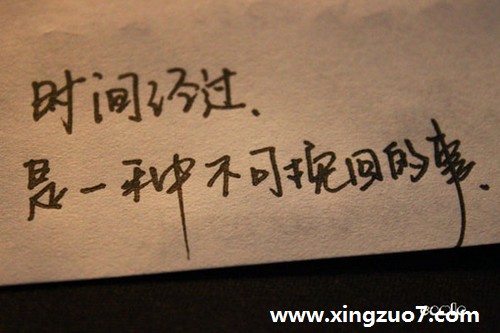 时间经过、
是一种不可挽回的事、
www.xingzuo7.com